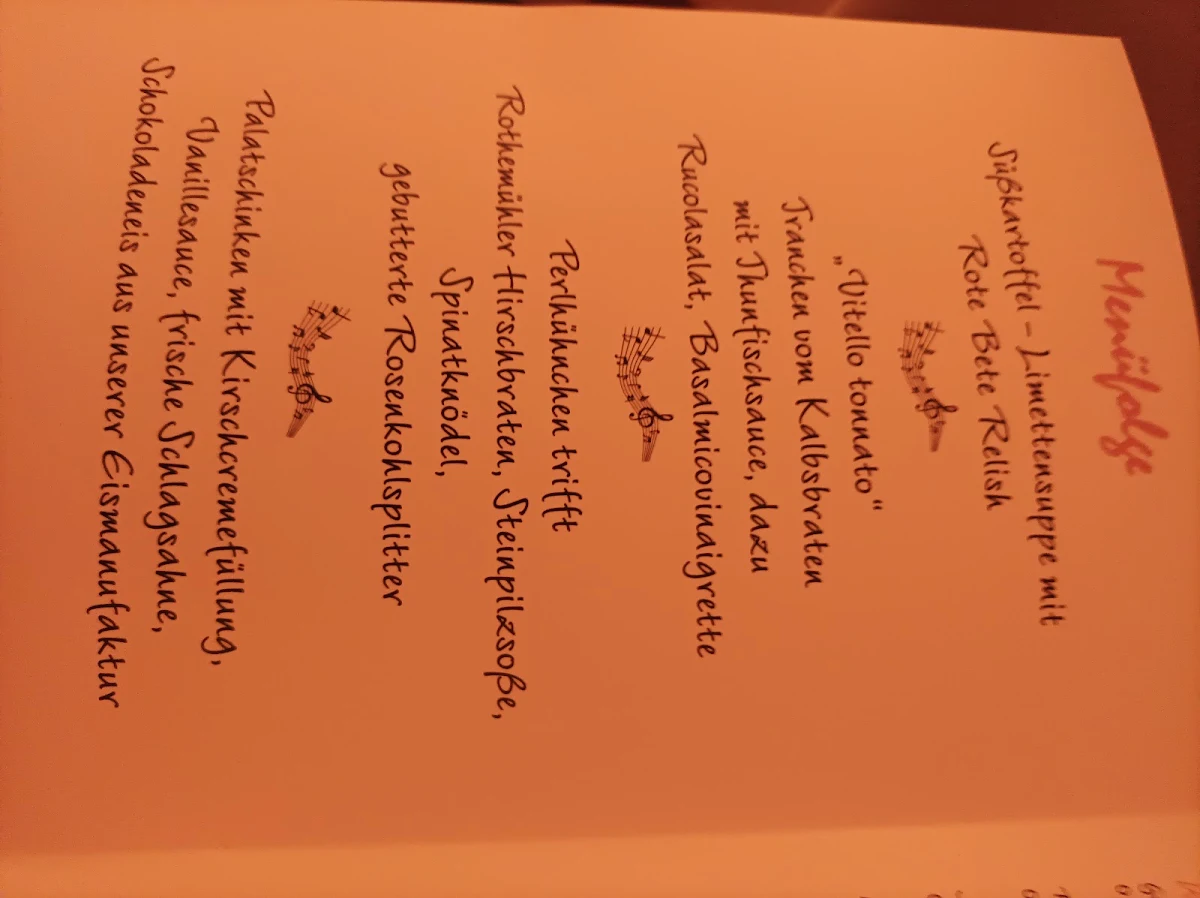 Menüfolge
Süßkartoffel - Limettensuppe mit
Rote Bete Relish
„Vitello tonnato“
Tranchen vom Kalbsbraten
mit Thunfischsauce, dazu
Rucolasalat, Basalmicovinaigrette
Perlhühnchen trifft
Rothemühler Hirschbraten, Steinpilzsoße,
Spinatknödel,
gebutterte Rosenkohlsplitter
Palatschinken mit Kirschcremefüllung,
Vanillesauce, frische Schlagsahne,
Schokoladeneis aus unserer Eismanufaktur